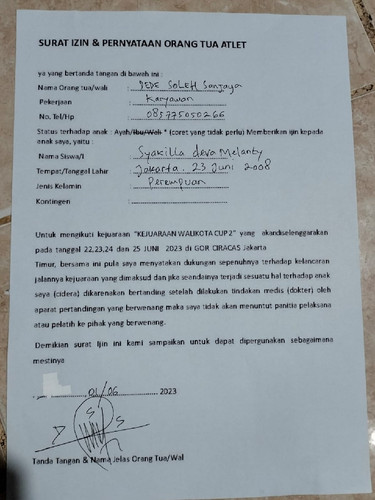 SURAT IZIN & PERNYATAAN ORANG TUA ATLET
ya yang bertanda tangan di bawah ini :
Nama Orang tua/wali : DEDE SOLEH Sanjaya
Pekerjaan : Karyawan
No. Tel/Hp : 085725050266
Status terhadap anak : Ayah/Ibu/Wali * (coret yang tidak perlu) Memberikan ijin kepada
anak saya, yaitu :
Nama Siswa/I : Syakilla deva Melanty
Tempat/Tanggal Lahir : Jakarta, 23 Juni 2008
Jenis Kelamin : Perempuan
Kontingen :
Untuk mengikuti kejuaraan "KEJUARAAN WALIKOTA CUP 2" yang akandiselenggarakan
pada tanggal 22,23,24 dan 25 JUNI 2023 di GOR CIRACAS Jakarta
Timur, bersama ini pula saya menyatakan dukungan sepenuhnya terhadap kelancaran
jalannya kejuaraan yang dimaksud dan jika seandainya terjadi sesuatu hal terhadap anak
saya (cidera) dikarenakan bertanding setelah dilakukan tindakan medis (dokter) oleh
aparat pertandingan yang berwenang maka saya tidak akan menuntut panitia pelaksana
atau pelatih ke pihak yang berwenang.
Demikian surat Ijin ini kami sampaikan untuk dapat dipergunakan sebagaimana
mestinya
01/06 2023
Tanda Tangan & Nama Jelas Orang Tua/Wal